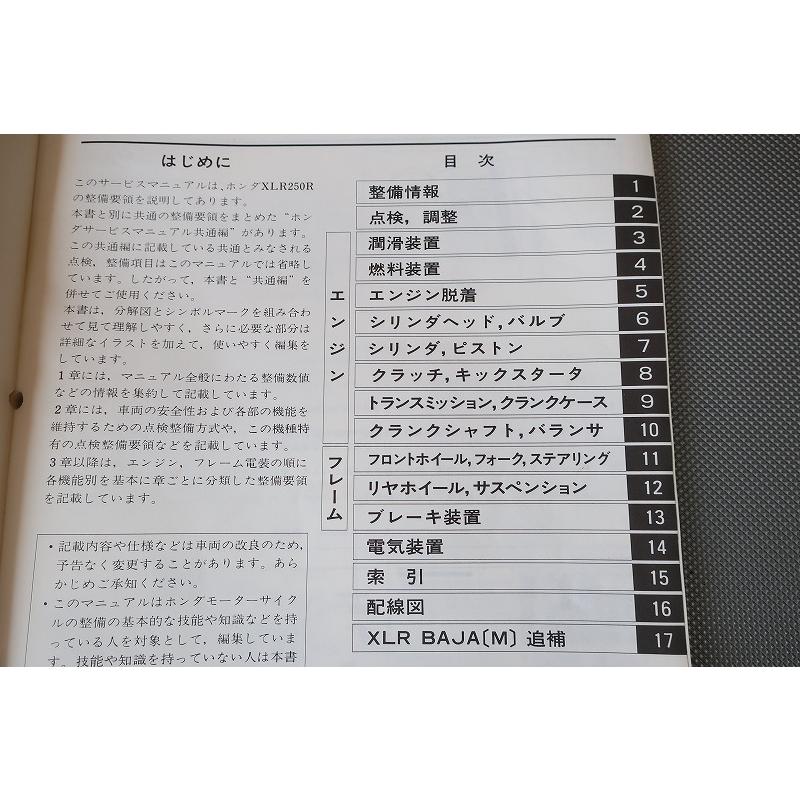 はじめに
このサービスマニュアルは、ホンダXLR250R
の整備要領を説明してあります。
本書と別に共通の整備要領をまとめた“ホン
ダサービスマニュアル共通編”があります。
この共通編に記載している共通とみなされる
点検, 整備項目はこのマニュアルでは省略し
ています。したがって, 本書と“共通編”を
併せてご使用ください。
本書は, 分解図とシンボルマークを組み合わ
せて見て理解しやすく, さらに必要な部分は
詳細なイラストを加えて, 使いやすく編集を
しています。
1章には, マニュアル全般にわたる整備数値
などの情報を集約して記載しています。
2章には, 車両の安全性および各部の機能を
維持するための点検整備方式や, この機種特
有の点検整備要領などを記載しています。
3章以降は, エンジン, フレーム電装の順に
各機能別を基本に章ごとに分類した整備要領
を記載しています。
・記載内容や仕様などは車両の改良のため,
予告なく変更することがあります。あら
かじめご承知ください。
・このマニュアルはホンダモーターサイク
ルの整備の基本的な技能や知識などを持
っている人を対象として, 編集していま
す。技能や知識を持っていない人は本書
目次
整備情報 1
点検, 調整 2
エンジン
潤滑装置 3
燃料装置 4
エンジン脱着 5
シリンダヘッド, バルブ 6
シリンダ, ピストン 7
クラッチ, キックスタータ 8
トランスミッション, クランクケース 9
クランクシャフト, バランサ 10
フレーム
フロントホイール, フォーク, ステアリング 11
リヤホイール, サスペンション 12
ブレーキ装置 13
電気装置 14
索引 15
配線図 16
XLR BAJA〔M〕追補 17